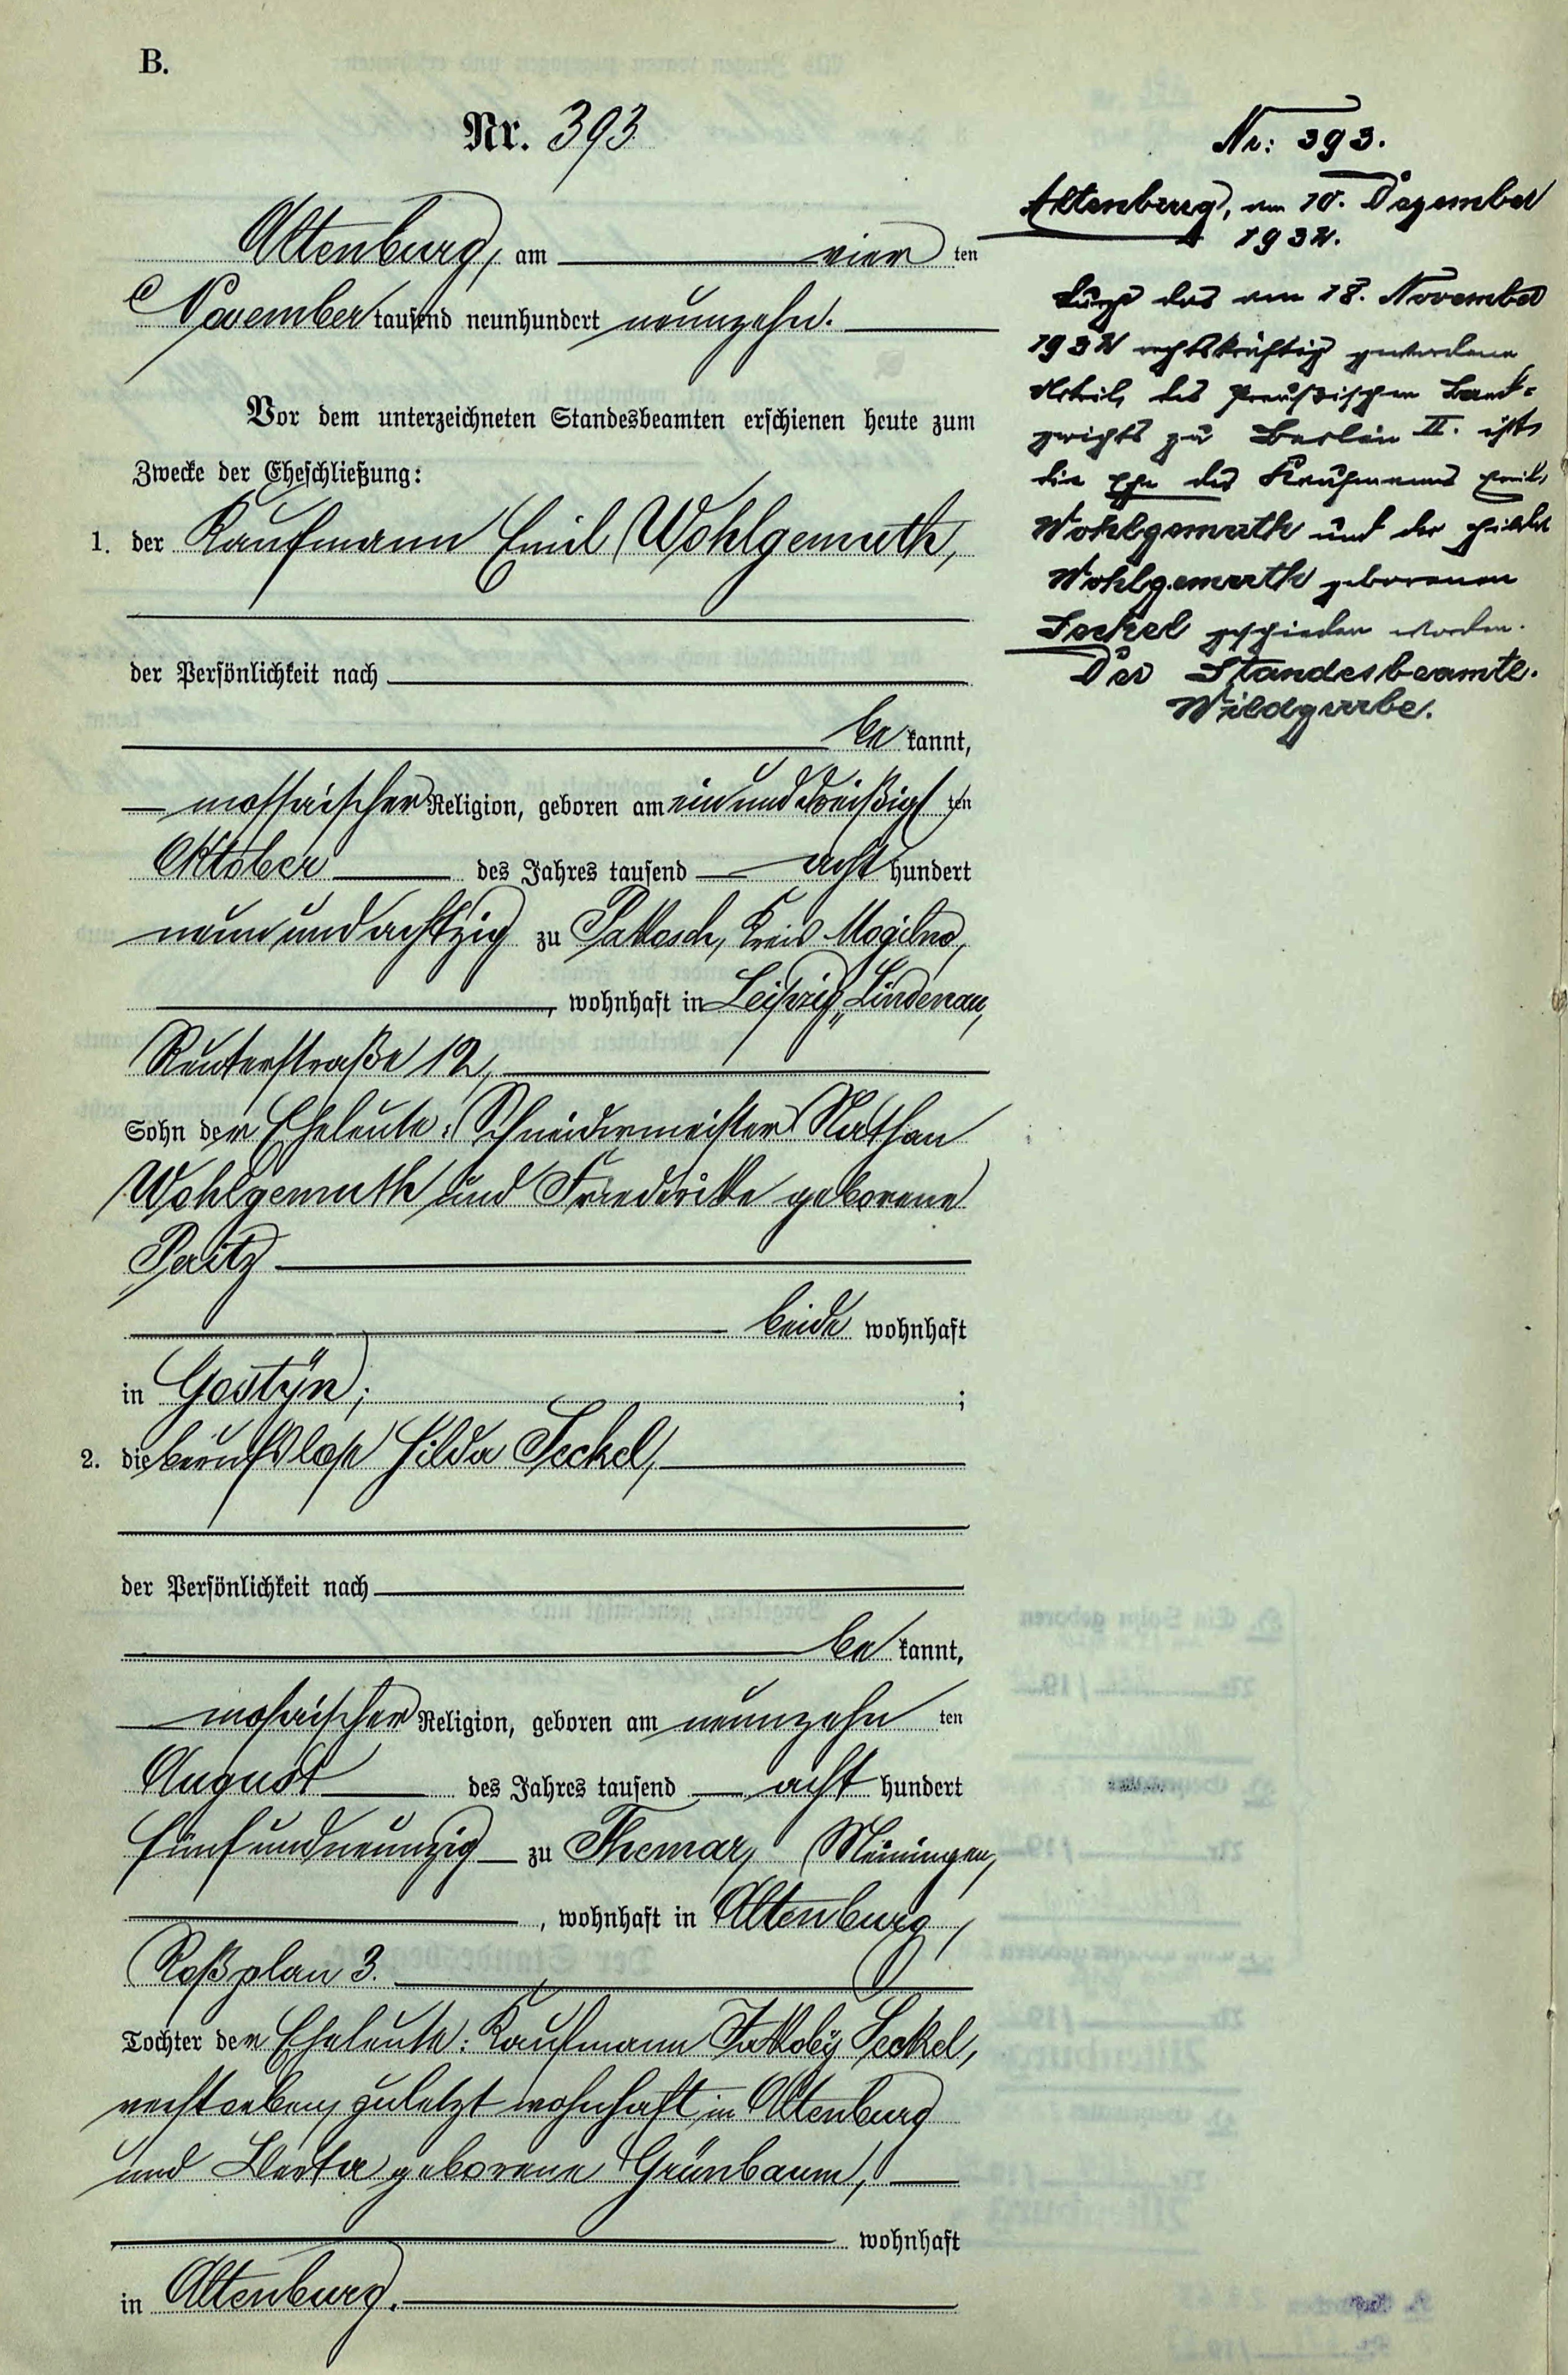 B.
Nr. 393
Altenburg, am vier ten
November tausend neunhundert neunzehn.
Vor dem unterzeichneten Standesbeamten erschienen heute zum
Zwecke der Eheschließung:
1. der Kaufmann Emil Wohlgemuth,
der Persönlichkeit nach
be kannt,
mosaischer Religion, geboren am einunddreißigsten
Oktober des Jahres tausend acht hundert
neunundachtzig zu Pakosch, Kreis Mogilno,
, wohnhaft in Leipzig-Lindenau,
Reuterstraße 12,
Sohn der Eheleute: Schneidermeister Nathan
Wohlgemuth und Friederike geborene
beide wohnhaft
in Gostÿn; ;
2. die berufslose Hilda Seckel,
der Persönlichkeit nach
be kannt,
mosaischer Religion, geboren am neunzehn ten
August des Jahres tausend acht hundert
fünfundneunzig zu Themar, Meiningen,
, wohnhaft in Altenburg,
Roßplan 3.
Tochter der Eheleute: Kaufmann Jakob Seckel,
verstorben, zuletzt wohnhaft in Altenburg
und Berta geborene Grünbaum,
wohnhaft
in Altenburg.
Nr: 393.
Altenburg, am 10. Dezember
1932.
Durch das am 18. November
1932 rechtskräftig gewordene
Urteil des Preußischen Land-
gerichts zu Berlin II. ist
die Ehe des Kaufmanns Emil
Wohlgemuth und der Hilda
Wohlgemuth geborenen
Seckel geschieden worden.
Der Standesbeamte.